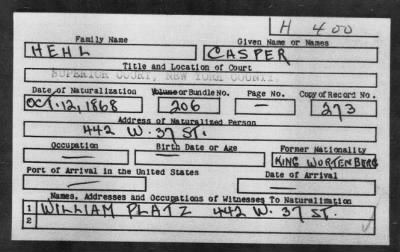 H 400
Family Name Given Name or Names
HEHL CASPER
Title and Location of Court
SUPERIOR COURT, NEW YORK COUNTY.
Date of Naturalization Volume or Bundle No. Page No. Copy of Record No.
OCT. 12, 1868 206 — 273
Address of Naturalized Person
442 W. 37 ST.
Occupation Birth Date or Age Former Nationality
— — KING WORTENBERG
Port of Arrival in the United States Date of Arrival
— —
Names, Addresses and Occupations of Witnesses To Naturalization
1 WILLIAM PLATZ 442 W. 37 ST.
2